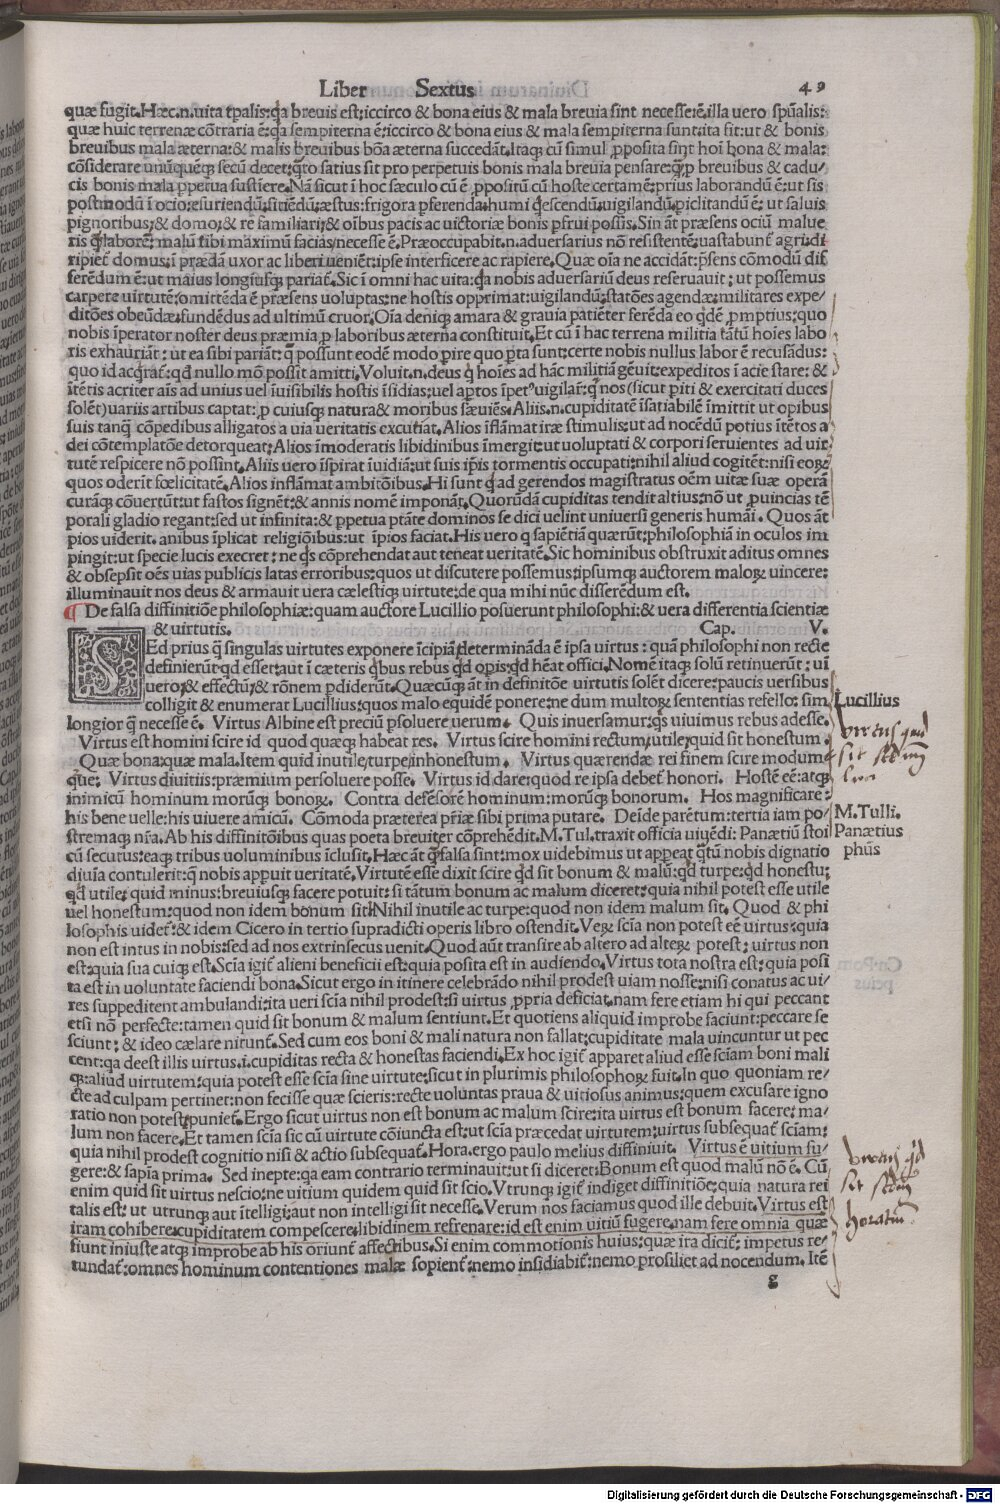 Liber Sextus 49
quæ fugit. Hæc.n.uita tp̄alis: q̇a breuis est: iccirco & bona eius & mala breuia sint necesse ē. illa uero spūalis:
quæ huic terrenæ cōtraria ē: q̇a sempiterna ē: iccirco & bona eius & mala sempiterna sunt ita fit: ut & bonis
breuibus mala æterna: & malis breuibus bōa æterna succedāt. Itaqȝ cū simul ꝓposita sint hoī bona & mala:
cōsiderare unūquēqȝ secū decet: q̄to satius sit pro perpetuis bonis mala breuia pensare: q̄ ꝑ breuibus & cadu/
cis bonis mala ꝑpetua sustīere. Nā sicut ī hoc sæculo cū ē ꝓpositū cū hoste certamē: prius laborandū ē: ut sis
postmodū ī ocio: esuriendū: sitiēdū: æstus: frigora ꝑferenda: humi q̇escendū: uigilandū: periclitandū ē: ut saluis
pignoribus: & domo: & re familiari: & oībus pacis ac uictoriæ bonis ꝑfrui possis. Sin āt præsens ociū malue
ris q̄ laborē: malū tibi maximū facias necesse ē. Præoccupabit.n.aduersarius nō resistentē: uastabunt̄ agri: di
ripiet̄ domus: ī prædā uxor ac liberi ueniēt: ipse interficere ac rapiere. Quæ oīa ne accidāt: p̄sens cōmodū dif
ferēdum ē: ut maius longiusq̄ pariat̄. Sic ī omni hac uita: q̇a nobis aduersariū deus reseruauit: ut possemus
carpere uirtutē: omittēda ē præsens uoluptas: ne hostis opprimat: uigilandū: statōes agendæ: militares expe/
ditōes obeūdæ: fundēdus ad ultimū cruor. Oīa deniqȝ amara & grauia patiēter ferēda eo q̇dē ꝓmptius: quo
nobis īperator noster deus præmia ꝑ laboribus æterna constituit. Et cū ī hac terrena militia tātū hoīes labo
ris exhauriāt: ut ea sibi pariāt: q̄ possunt eodē modo ꝑire quo ꝑta sunt: certe nobis nullus labor ē recusādus:
quo id acq̇rat̄: qd nullo mō possit amitti. Voluit.n.deus q̇ hoīes ad hāc militiā gēuit: expeditos ī acie stare: &
ītētis acriter aīs ad unius uel īuisibilis hostis īsidias: uel aꝑtos īpet⁹ uigilāt: q̄ nos (sicut ꝑiti & exercitati duces
solēt) uariis artibus captat: ꝓ cuiusqȝ natura & moribus sæuiēs. Aliis.n.cupiditatē īsatiabilē īmittit ut opibus
suis tanq̄ cōpedibus alligatos a uia ueritatis excutiat. Alios īflāmat iræ stimulis: ut ad nocēdū potius ītētos a
dei cōtemplatōe detorqueat. Alios īmoderatis libidinibus īmergit: ut uoluptati & corpori seruientes ad uir
tutē respicere nō possint. Aliis uero īspirat īuidiā: ut suis ip̄is tormentis occupati: nihil aliud cogitēt: nisi eoꝝ
quos oderīt fœlicitatē. Alios inflāmat ambitōibus. Hi sunt q̇ ad gerendos magistratus oēm uitæ suæ operā
curāqȝ cōuertūt: ut fastos signēt: & annis nomē imponāt. Quorūdā cupiditas tendit altius: nō ut ꝓuincias tē
porali gladio regant: sed ut infinita: & ꝑpetua ptāte dominos se dici uelint uniuersi generis humāi. Quos āt
pios uiderit. anibus īplicat religiōibus: ut īpios faciat. His uero q̇ sapiētiā quærūt: philosophiā in oculos im
pingit: ut specie lucis execret: ne q̇s cōprehendat aut teneat ueritatē. Sic hominibus obstruxit aditus omnes
& obsepsit oēs uias publicis latas erroribus: quos ut discutere possemus: ipsumqȝ auctorem maloꝝ uincere:
illuminauit nos deus & armauit uera cælestiqȝ uirtute: de qua mihi nūc disserēdum est.
¶ De falsa diffinitiōe philosophiæ: quam auctore Lucillio posuerunt philosophi: & uera differentia scientiæ
& uirtutis. Cap. V.
SEd prius q̄ singulas uirtutes exponere īcipiā: determināda ē ipsa uirtus: quā philosophi non recte
definierūt: qd esset: aut ī cæteris q̇bus rebus qd opis: qd hēat offici. Nomē itaqȝ solū retinuerūt: uī
uero: & effectū: & rōnem ꝑdiderūt. Quæcūqȝ āt in definitōe uirtutis solēt dicere: paucis uersibus
colligit & enumerat Lucillius: quos malo equidē ponere: ne dum multoꝝ sententias refello: sim
longior q̄ necesse ē. Virtus Albine est preciū ꝑsoluere uerum. Quis inuersamur: q̇s uiuimus rebus adesse.
Virtus est homini scire id quod quæqȝ habeat res. Virtus scire homini rectum: utile: quid sit honestum.
Quæ bona: quæ mala. Item quid inutile: turpe: inhonestum. Virtus quærendæ rei finem scire modum
qȝ: Virtus diuitiis: præmium persoluere posse. Virtus id dare: quod re ipsa debet̄ honori. Hostē eē: atqȝ
inimicū hominum morūqȝ bonoꝝ. Contra defēsorē hominum: morūqȝ bonorum. Hos magnificare:
his bene uelle: his uiuere amicū. Cōmoda præterea pr̄iæ sibi prima putare. Deīde parētum: tertia iam po/
stremaqȝ nr̄a. Ab his diffinitōibus quas poeta breuiter cōprehēdit. M.Tul. traxit officia uiuēdi: Panætiū stoi
cū secutus: eaqȝ tribus uoluminibus īclusit. Hæc āt q̄ falsa sint: mox uidebimus ut appeat q̄tū nobis dignatio
diuīa contulerit: q̄ nobis aꝑuit ueritatē. Virtutē esse dixit scire qd sit bonum & malū: qd turpe: qd honestū:
qd utile: quid minus: breuiusqȝ facere potuit: si tātum bonum ac malum diceret: quia nihil potest esse utile
uel honestum: quod non idem bonum sit. Nihil inutile ac turpe: quod non idem malum sit. Quod & phi
losophis uidet̄: & idem Cicero in tertio supradicti operis libro ostendit. Veꝝ scīa non potest eē uirtus: quia
non est intus in nobis: sed ad nos extrinsecus uenit. Quod aūt transire ab altero ad alteꝝ potest: uirtus non
est: quia sua cuiqȝ est. Scīa igit̄ alieni beneficii est: quia posita est in audiendo. Virtus tota nostra est: quia posi
ta est in uoluntate faciendi bona. Sicut ergo in itinere celebrādo nihil prodest uiam nosse: nisi conatus ac ui/
res suppeditent ambulandi: ita ueri scīa nihil prodest: si uirtus ꝓpria deficiat. nam fere etiam hi qui peccant
etsi nō perfecte: tamen quid sit bonum & malum sentiunt. Et quotiens aliquid improbe faciunt: peccare se
sciunt: & ideo cælare nitunt̄. Sed cum eos boni & mali natura non fallat: cupiditate mala uincuntur ut pec
cent: q̇a deest illis uirtus. i. cupiditas recta & honestas faciendi. Ex hoc igit̄ apparet aliud esse scīam boni mali
qȝ: aliud uirtutem: quia potest esse scīa sine uirtute: sicut in plurimis philosophoꝝ fuit. In quo quoniam re/
cte ad culpam pertinet: non fecisse quæ scieris: recte uoluntas praua & uitiosus animus: quem excusare igno
ratio non potest: puniet̄. Ergo sicut uirtus non est bonum ac malum scire: ita uirtus est bonum facere: ma/
lum non facere. Et tamen scīa sic cū uirtute cōiuncta est: ut scīa præcedat uirtutem: uirtus subsequat̄ sciam:
quia nihil prodest cognitio nisi & actio subsequat̄. Hora. ergo paulo melius diffiniuit. Virtus ē uitium fu/
gere: & sapīa prima. Sed inepte: qa eam contrario terminauit: ut si diceret: Bonum est quod malū nō ē. Cū
enim quid sit uirtus nescio: ne uitium quidem quid sit scio. Vtrunqȝ igit̄ indiget diffinitiōe: quia natura rei
talis est: ut utrunqȝ aut ītelligi: aut non intelligi sit necesse. Verum nos faciamus quod ille debuit. Virtus est
iram cohibere: cupiditatem compescere: libidinem refrenare: id est enim uitiū fugere. nam fere omnia quæ
fiunt iniuste atqȝ improbe ab his oriunt̄ affectibus. Si enim commotionis huius: quæ ira dicit̄: impetus re/
tundat̄: omnes hominum contentiones malæ sopient̄: nemo insidiabit̄: nemo prosiliet ad nocendum. Itē
g
Lucillius
virtus quid
sit
M.Tulli.
Panætius
phūs
virtus qd
sit
horatiū
Digitalisierung gefördert durch die Deutsche Forschungsgemeinschaft - DFG